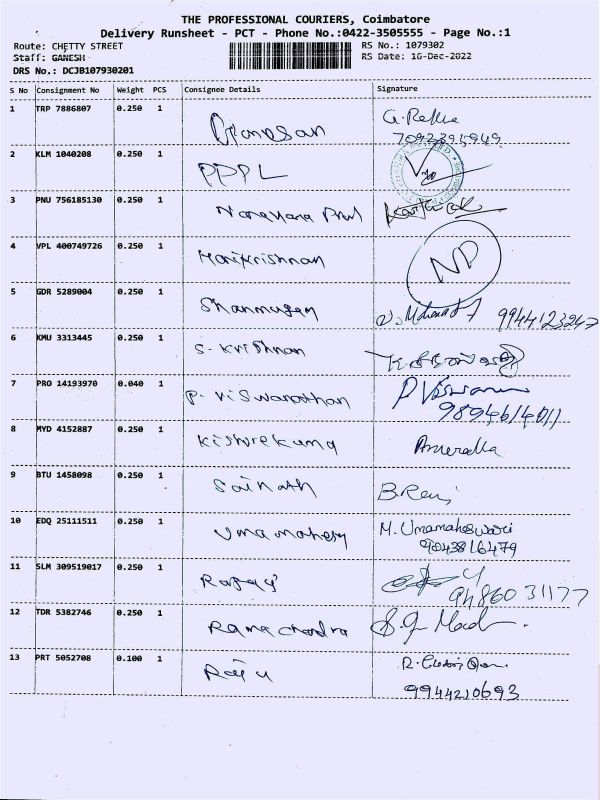 THE PROFESSIONAL COURIERS, Coimbatore
Delivery Runsheet - PCT - Phone No.:0422-3505555 - Page No.:1
Route: CHETTY STREET RS No.: 1079302
Staff: GANESH RS Date: 16-Dec-2022
DRS No.: DCJB107930201
S No Consignment No Weight PCS Consignee Details Signature
1 TRP 7886807 0.250 1 G. Rekha
7092395949
2 KLM 1040208 0.250 1 PPPL
3 PNU 756185130 0.250 1 Narayana Karthick
4 VPL 400749726 0.250 1 Harikrishnan ND
5 GDR 5289004 0.250 1 Shanmugam 9944123247
6 KMU 3313445 0.250 1 S. Krishnan
7 PRO 14193970 0.040 1 P. Viswanathan P Viswanathan
9894614011
8 MYD 4152887 0.250 1
9 BTU 1458098 0.250 1 Sainath B. Ravi
10 EDQ 25111511 0.250 1 Uma mahesw M. Umamaheswari
9043816479
11 SLM 309519017 0.250 1
94860 31177
12 TDR 5382746 0.250 1 Rama chandra
13 PRT 5052708 0.100 1 Raju
9944210693